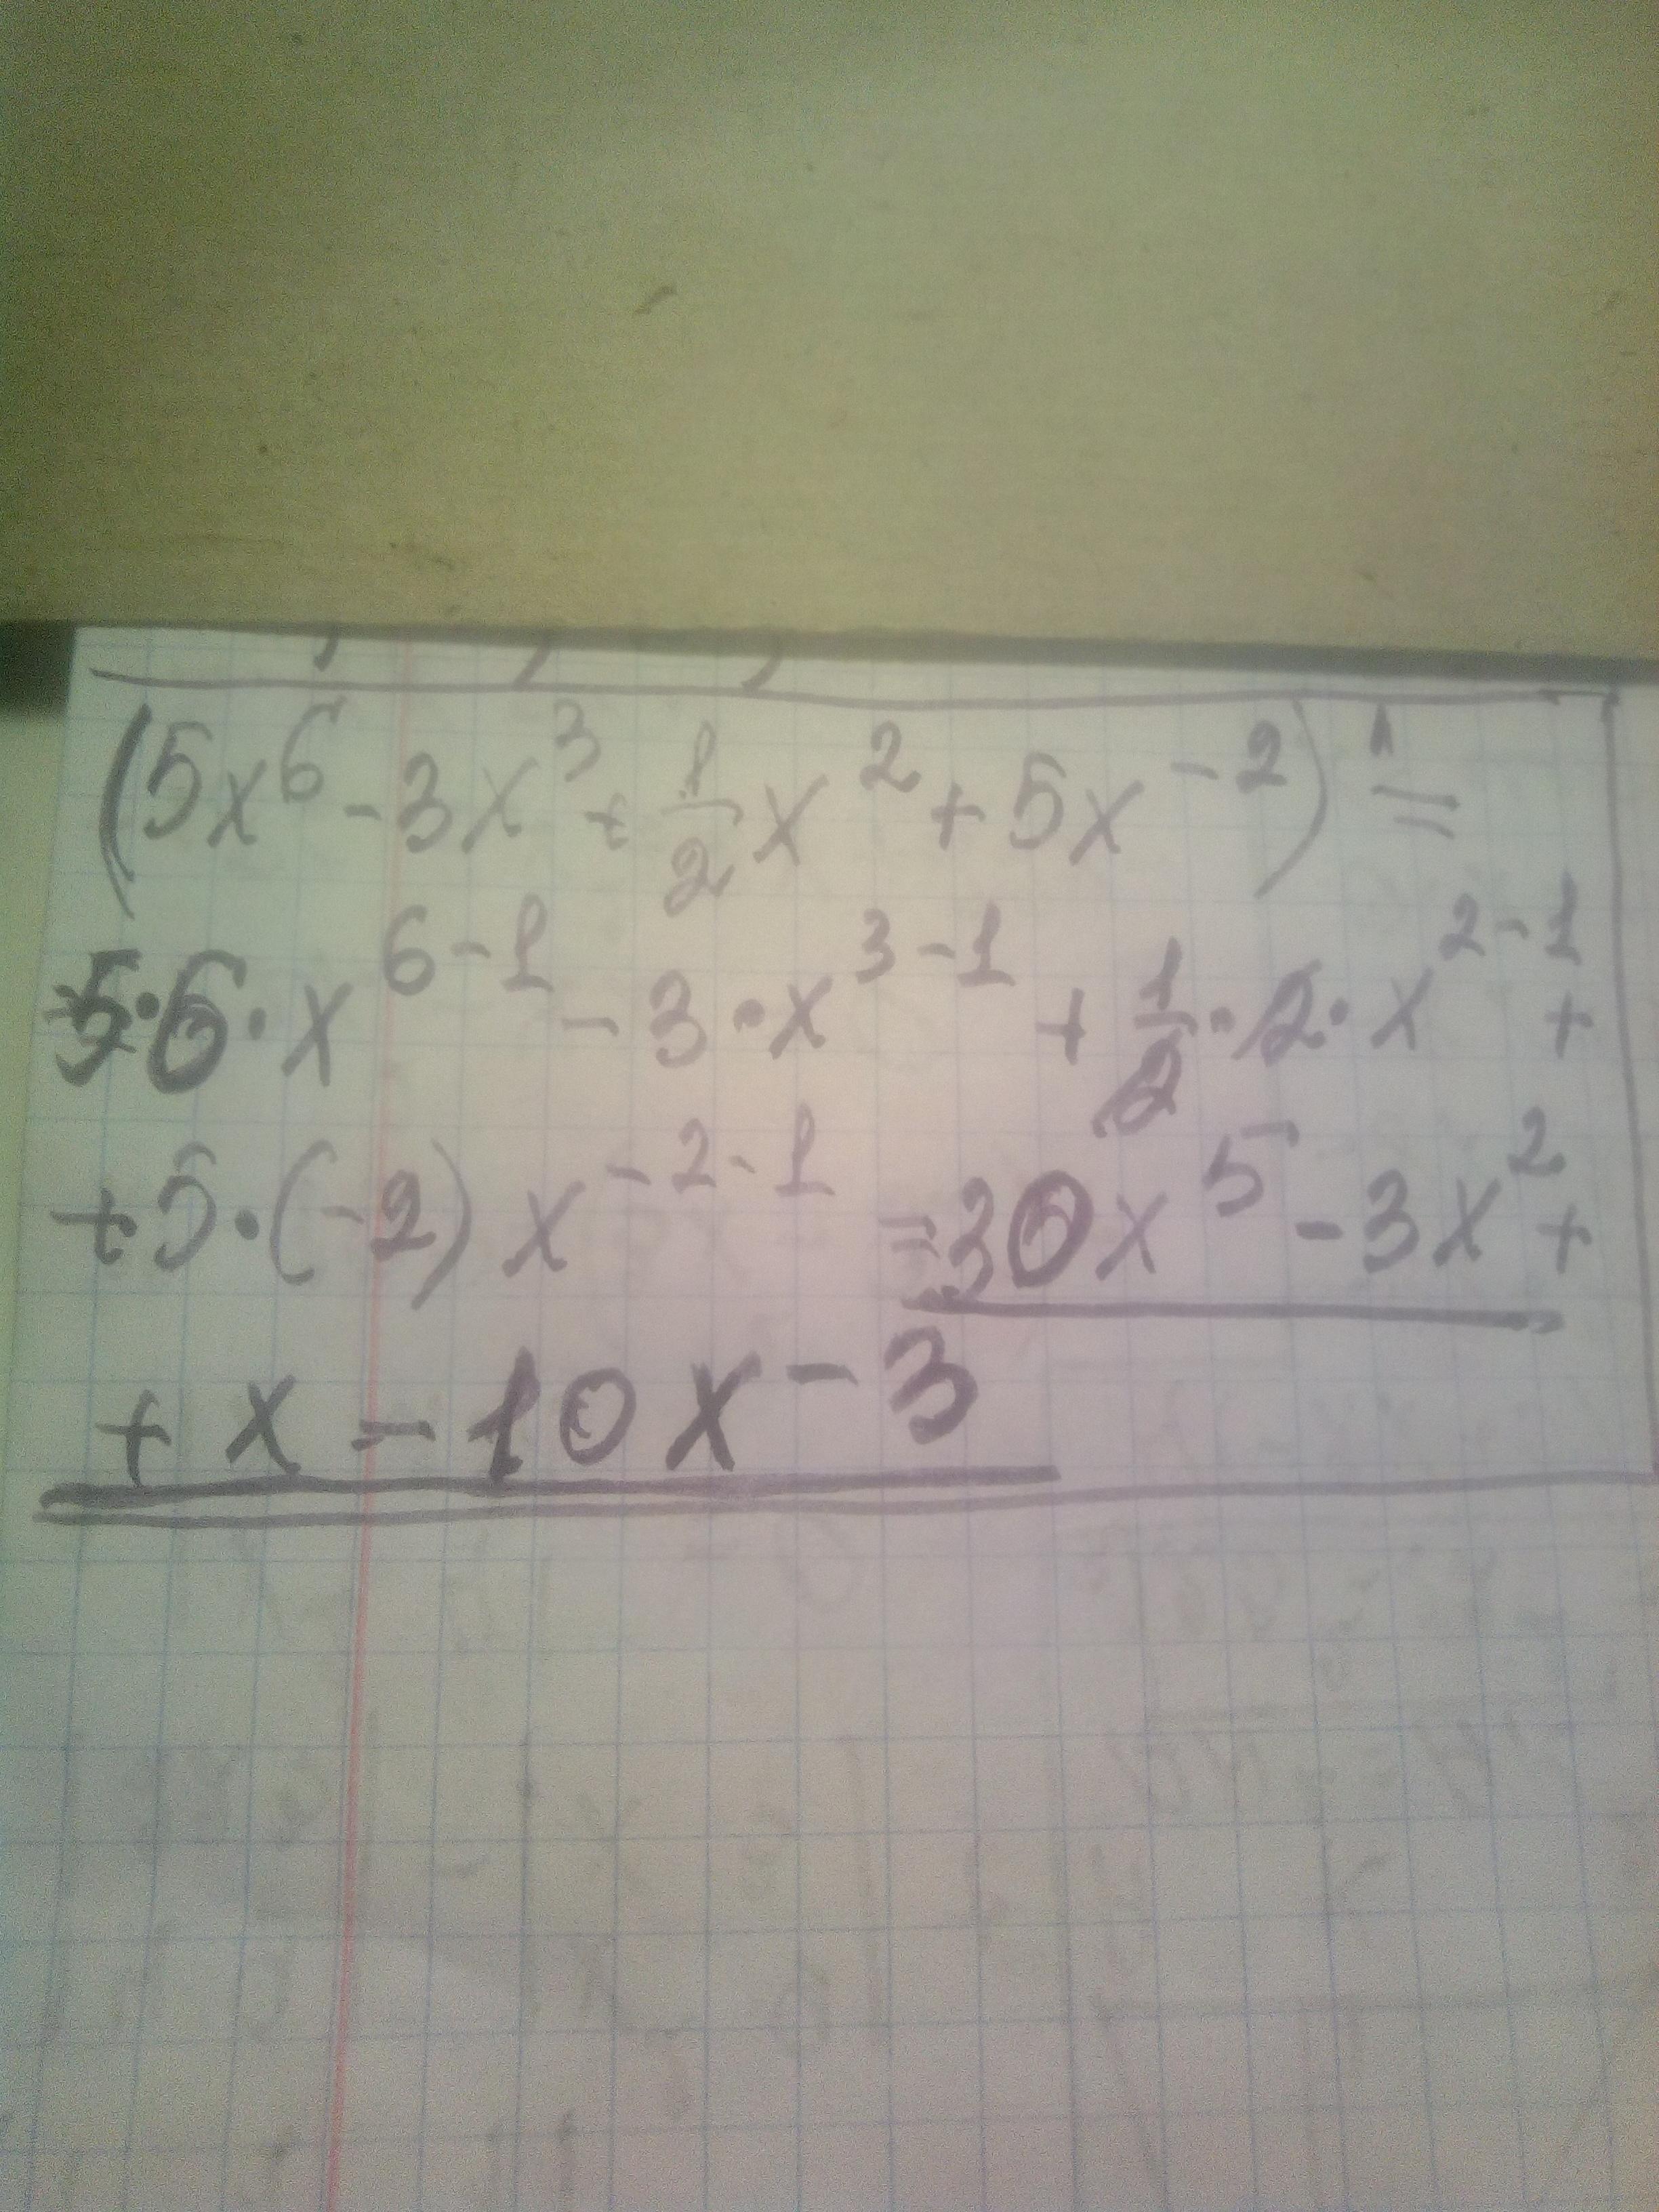 (5x⁶ - 3x³ + 1/2 x² + 5x⁻²)' =
5·6·x⁶⁻¹ - 3·x³⁻¹ + 1/2·2·x²⁻¹ +
+ 5·(-2)x⁻²⁻¹ = 30x⁵ - 3x² +
+ x - 10x⁻³